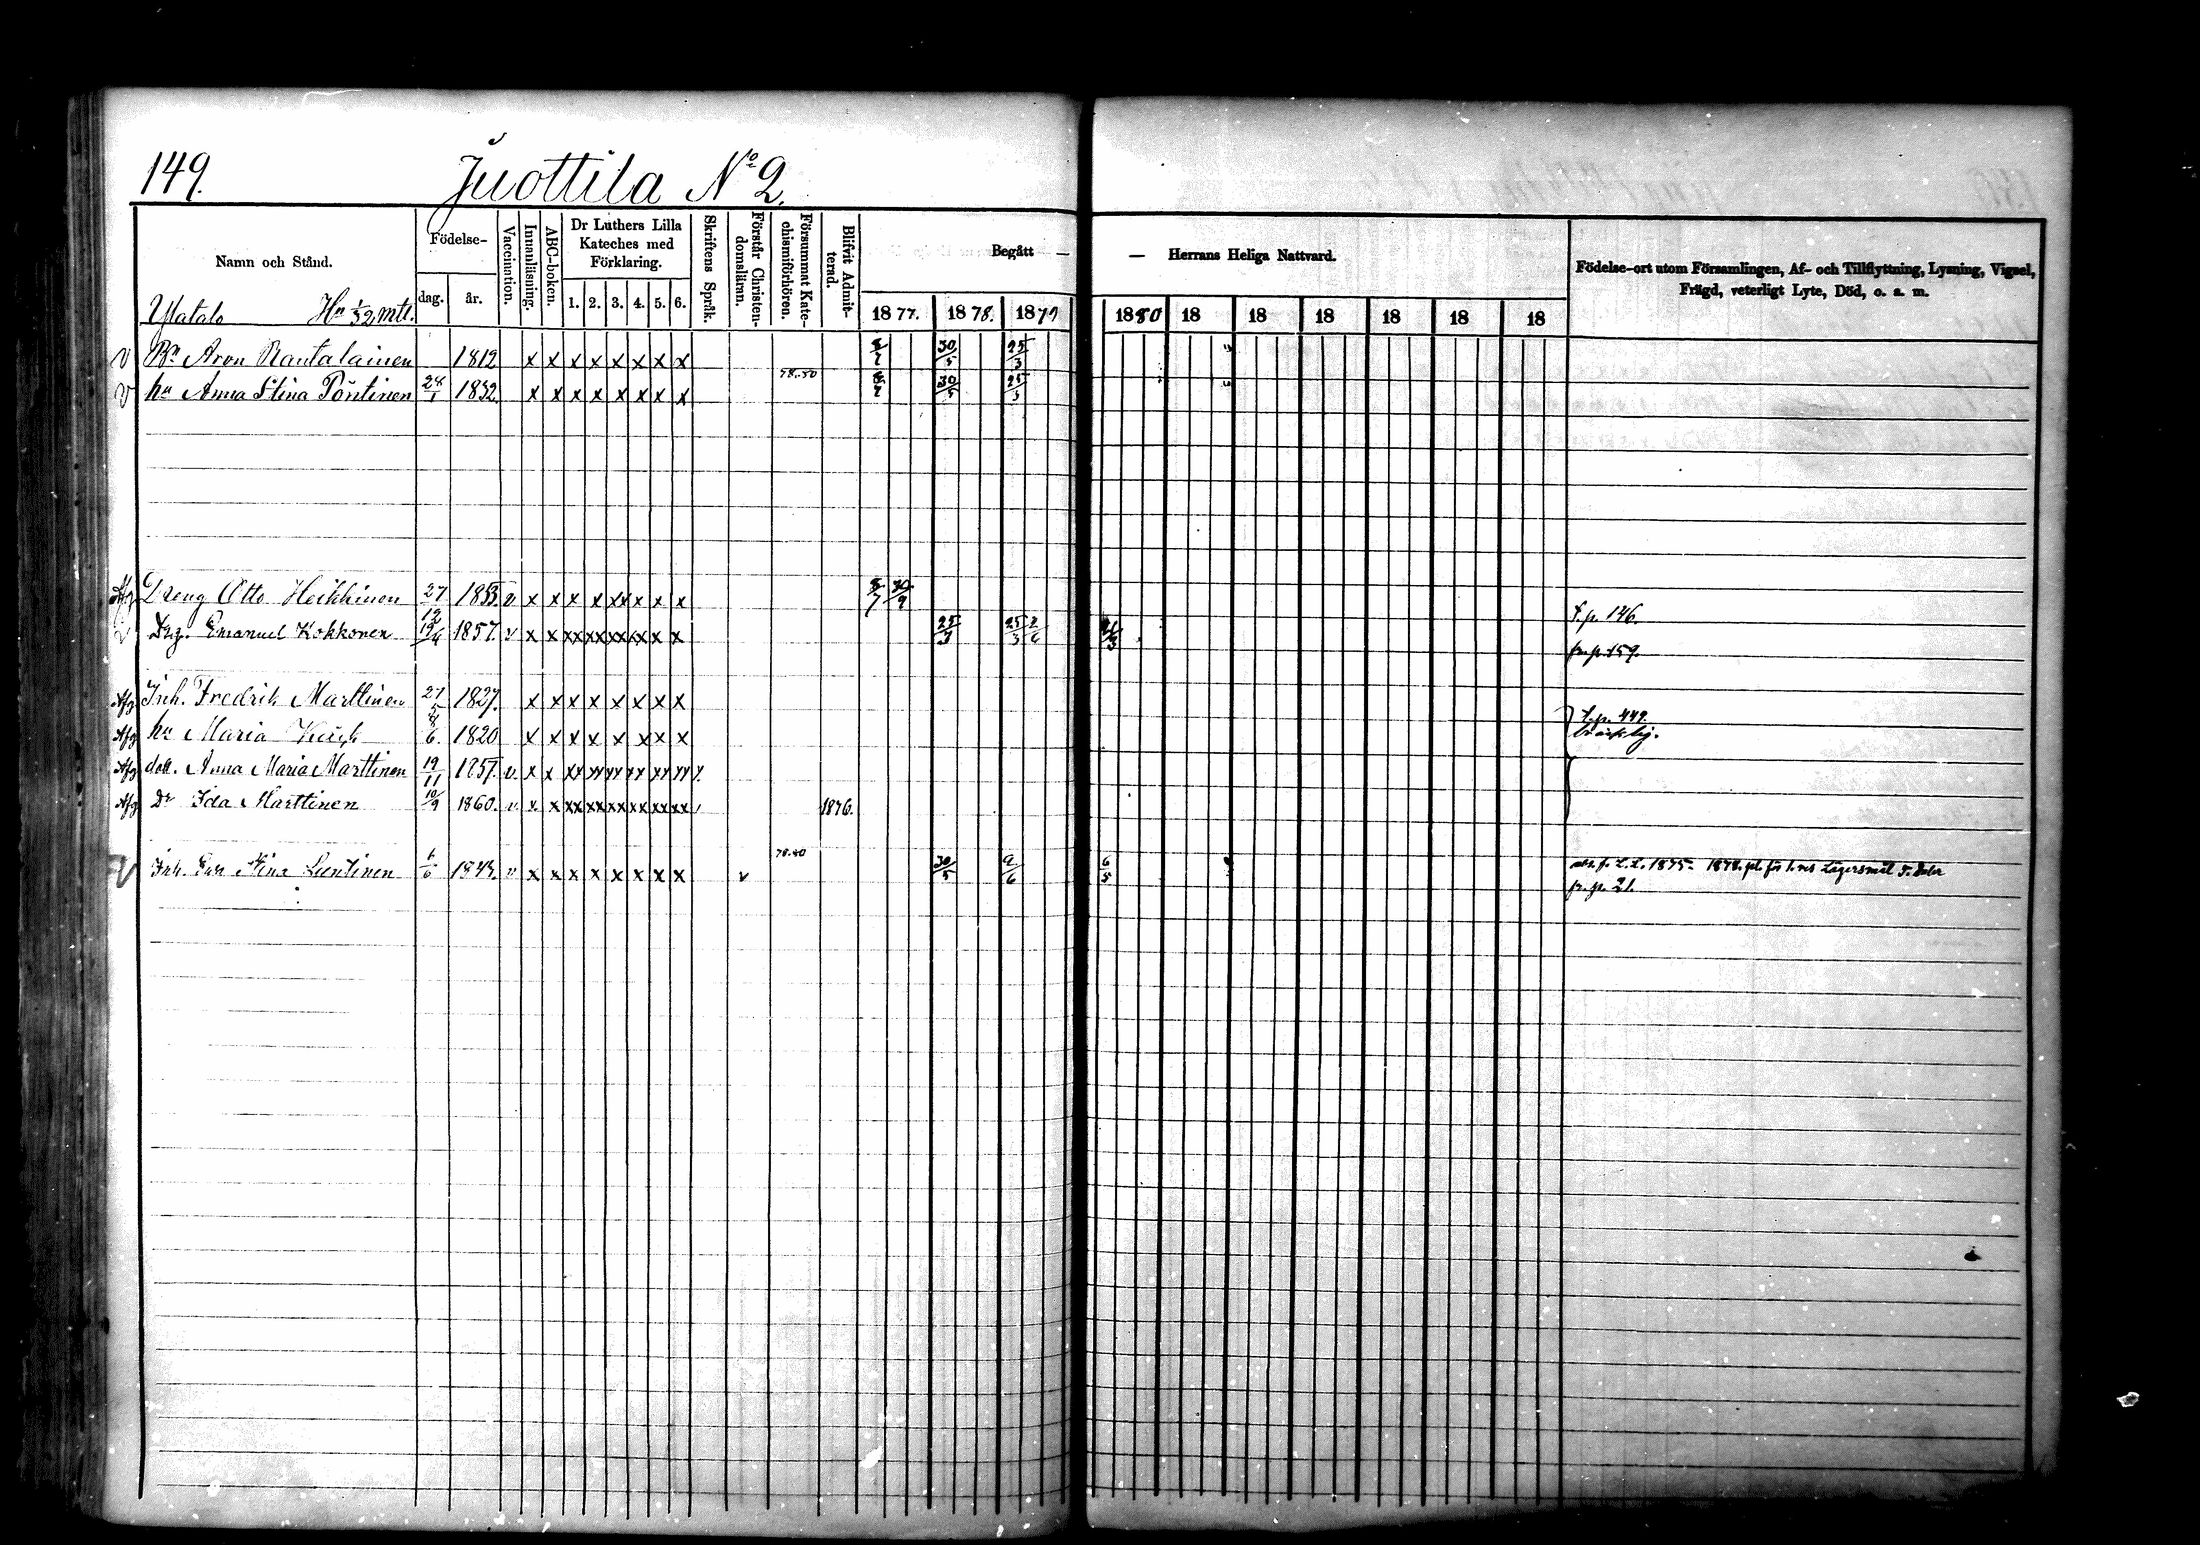 149. Juottila No 2.
Namn och Stånd. Födelse- dag. år. Vaccination. Innanläsning. ABC-boken. Dr Luthers Lilla Kateches med Förklaring. 1. 2. 3. 4. 5. 6. Skriftens Språk. Förstår Christendomsläran. Försummat Katechismiförhören. Blifvit Admitterad. Begått — — Herrans Heliga Nattvard. Födelse-ort utom Församlingen, Af- och Tillflyttning, Lysning, Vigsel, Frägd, veterligt Lyte, Död, o. a. m.
Ylatalo Hn 1/32 mtl. 1877. 1878. 1879 1880 18 18 18 18 18 18
v Bn Aron Rantalainen 1812 x x x x x x x x 8/7 30/5 25/3
v hu Anna Stina Pöntinen 28/1 1832 x x x x x x x x 78.80 8/7 30/5 25/3
Afg Dreng Otto Heikkinen 27/12 1853. v x x x x xx x x x 8/7 30/9 t.p. 146.
v Drg. Emanuel Kokkonen 19/4 1857. v x x xx xx xx xx x x 25/3 25/3 2/6 21/3 fr. p. 159.
Afg Inh. Fredrik Marttinen 27/5 1827. x x x x x x x x t.p. 449.
Afg hu Maria 8/6. 1820 x x x x x x x x
Afg dott. Anna Maria Marttinen 19/11 1857. v. x x xx xx xx xx xx xx
Afg Dr Ida Marttinen 10/9 1860. v x x xx xx xx xx xx xx 1876.
v Inh. Eva Stina Luntinen 6/6 1843. v x x x x x x x x v 78.80 30/5 2/6 6/5 1875 1878.
fr. p. 21.